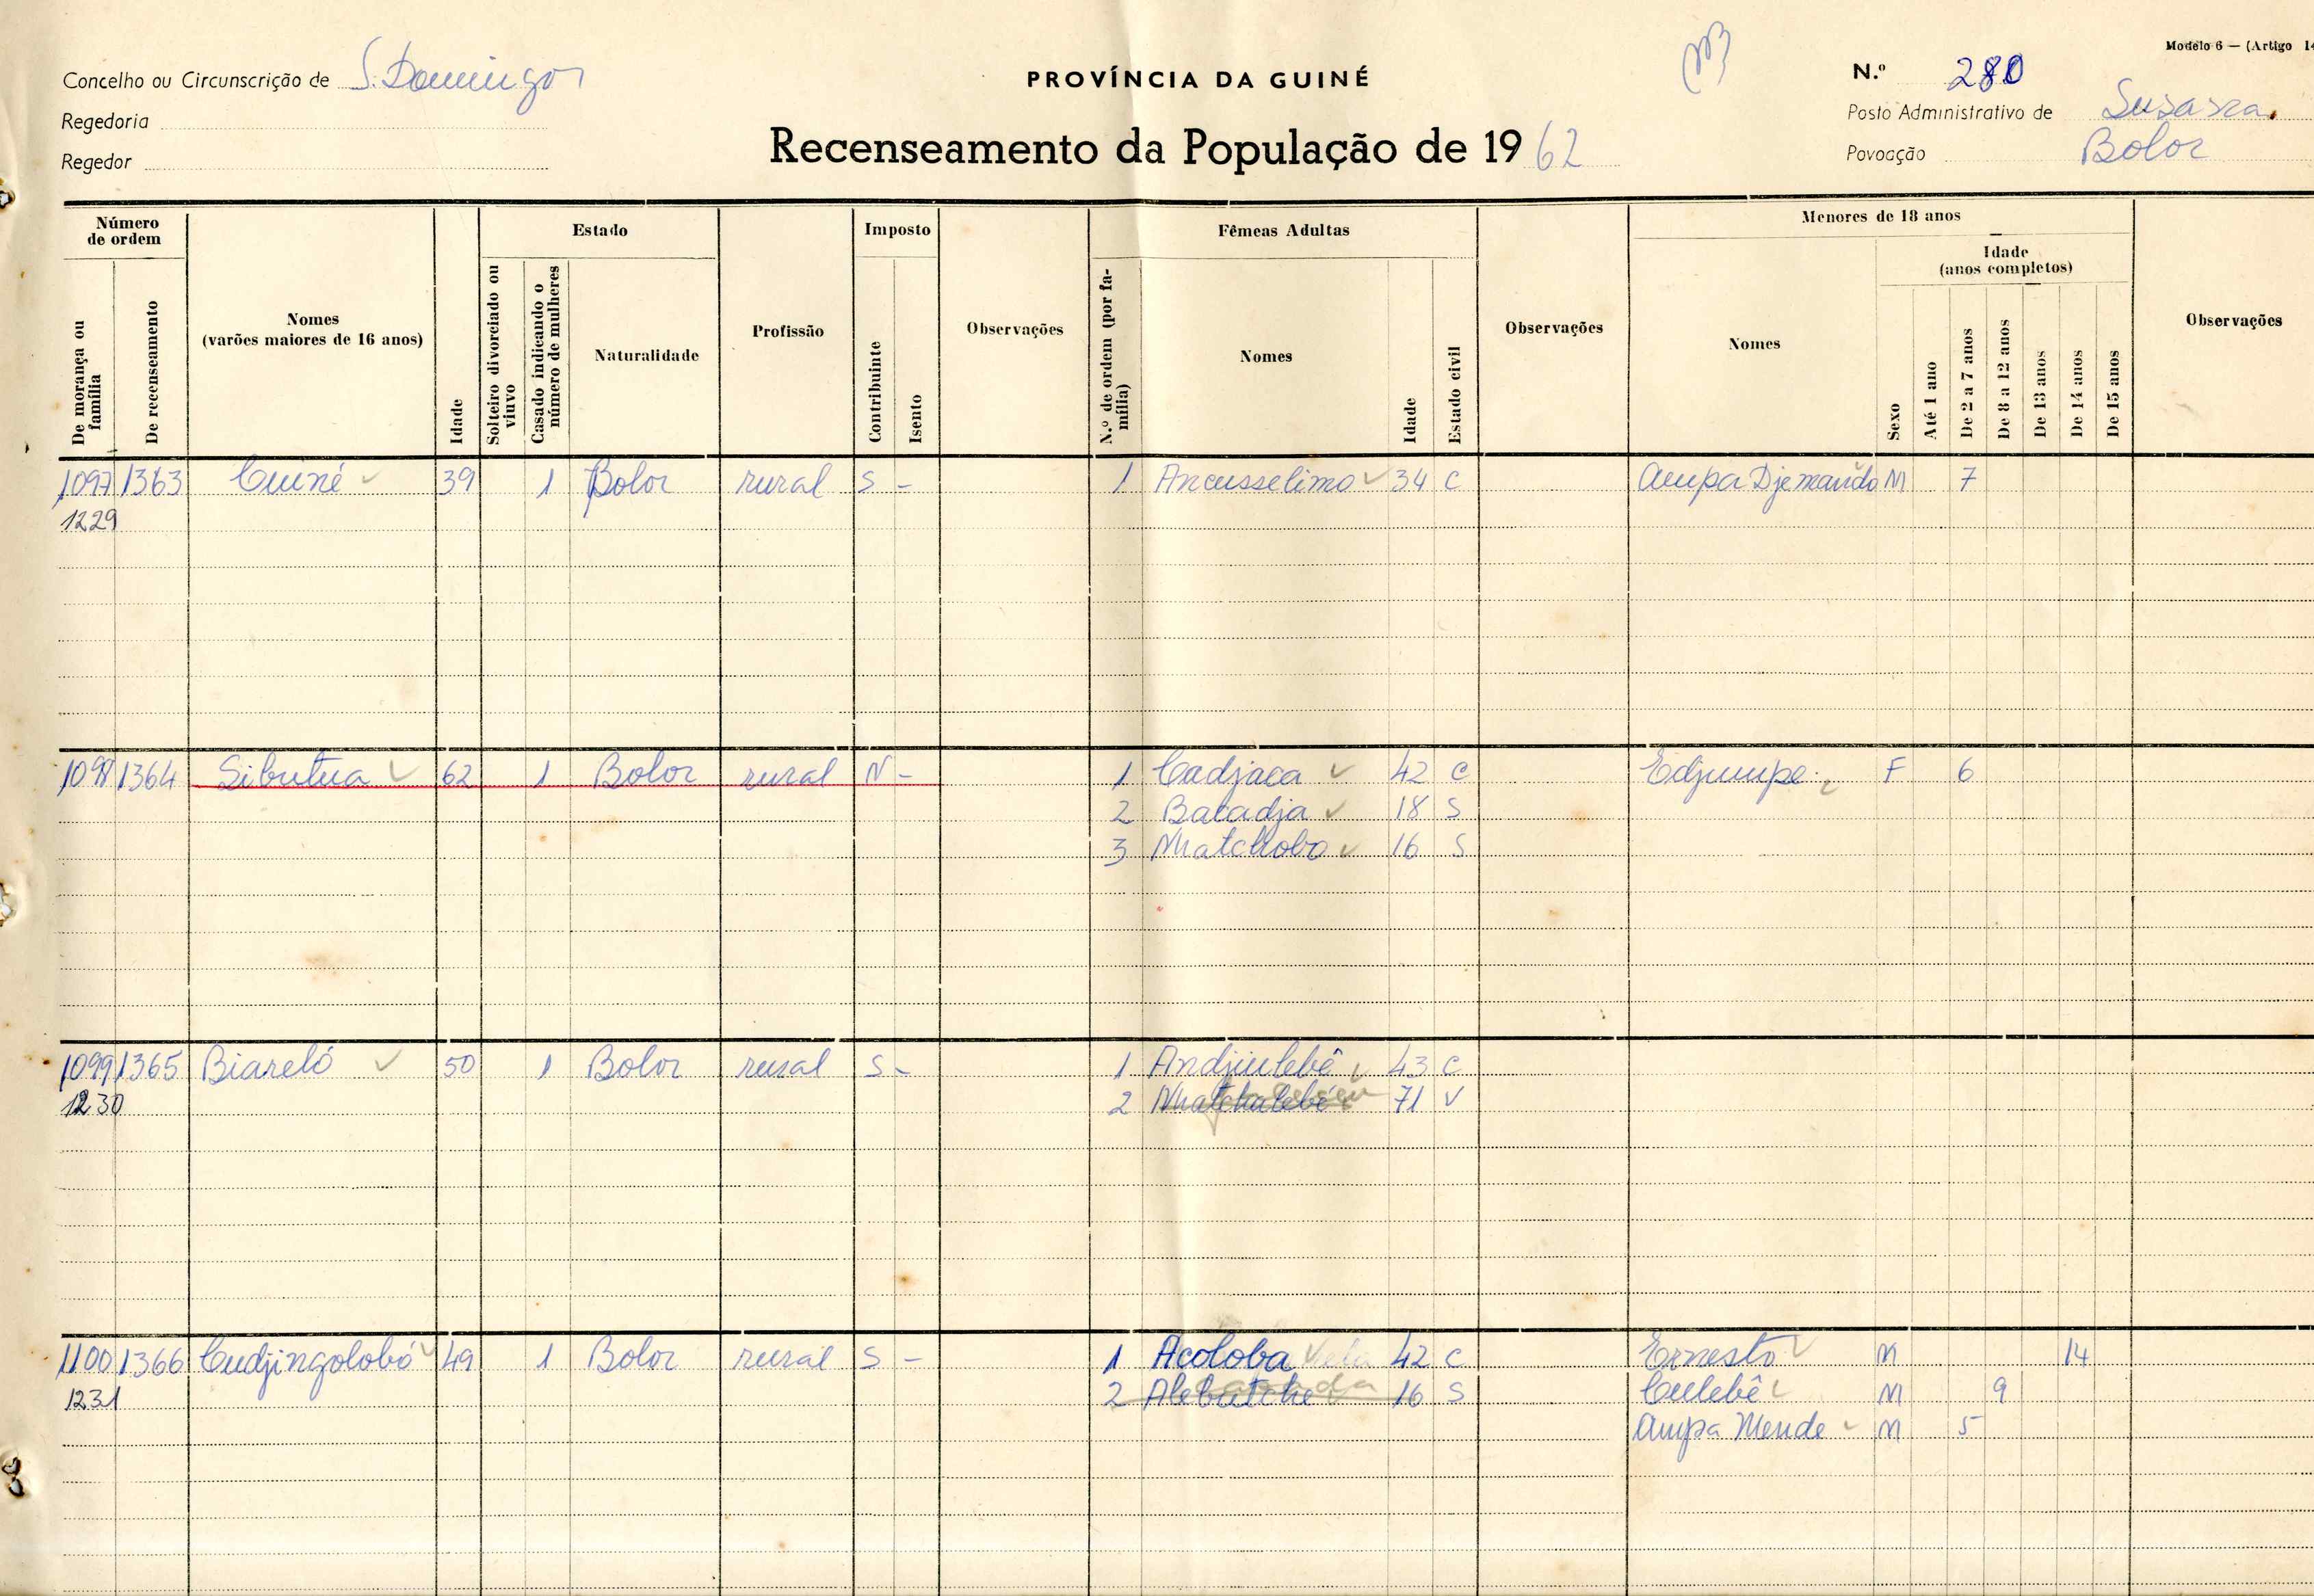 Modelo 6 — (Artigo 14
Concelho ou Circunscrição de S. Domingos
PROVÍNCIA DA GUINÉ
N.º 280
Regedoria
Posto Administrativo de Susana.
Regedor
Recenseamento da População de 1962
Povoação Bolor
Número de ordem
De morança ou família
De recenseamento
Nomes (varões maiores de 16 anos)
Idade
Estado
Solteiro divorciado ou viuvo
Casado indicando o número de mulheres
Naturalidade
Profissão
Imposto
Contribuinte
Isento
Observações
Fêmeas Adultas
N.º de ordem (por família)
Nomes
Idade
Estado civil
Observações
Menores de 18 anos
Nomes
Sexo
Idade (anos completos)
Até 1 ano
De 2 a 7 anos
De 8 a 12 anos
De 13 anos
De 14 anos
De 15 anos
Observações
1097 1363 Cuiné 39 1 Bolor rural S - 1 Ancusselimo 34 C Ampa Djemando M 7
1229
1098 1364 Sibutua 62 1 Bolor rural N - 1 Cadjaca 42 C Edjumpe F 6
2 Batadja 18 S
3 Nhatchobo 16 S
1099 1365 Biareló 50 1 Bolor rural S - 1 Andjiulebê 43 C
1230 2 Nhatchalebé 71 V
1100 1366 Cudjingolobó 49 1 Bolor rural S - 1 Acoloba 42 C Ernesto M 14
1231 2 Alebutche 16 S Culebê M 9
Ampa Mende M 5